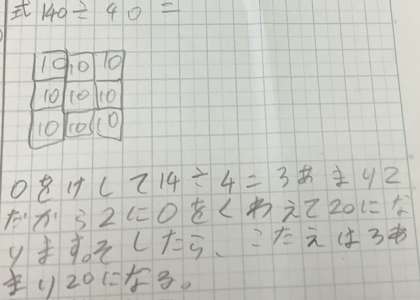 式 140÷40=
10 10 10
10 10 10
10 10 10
0をけして14÷4=3あまり2
だから2に0をくわえて20にな
ります。そしたら、こたえは3あ
まり20になる。